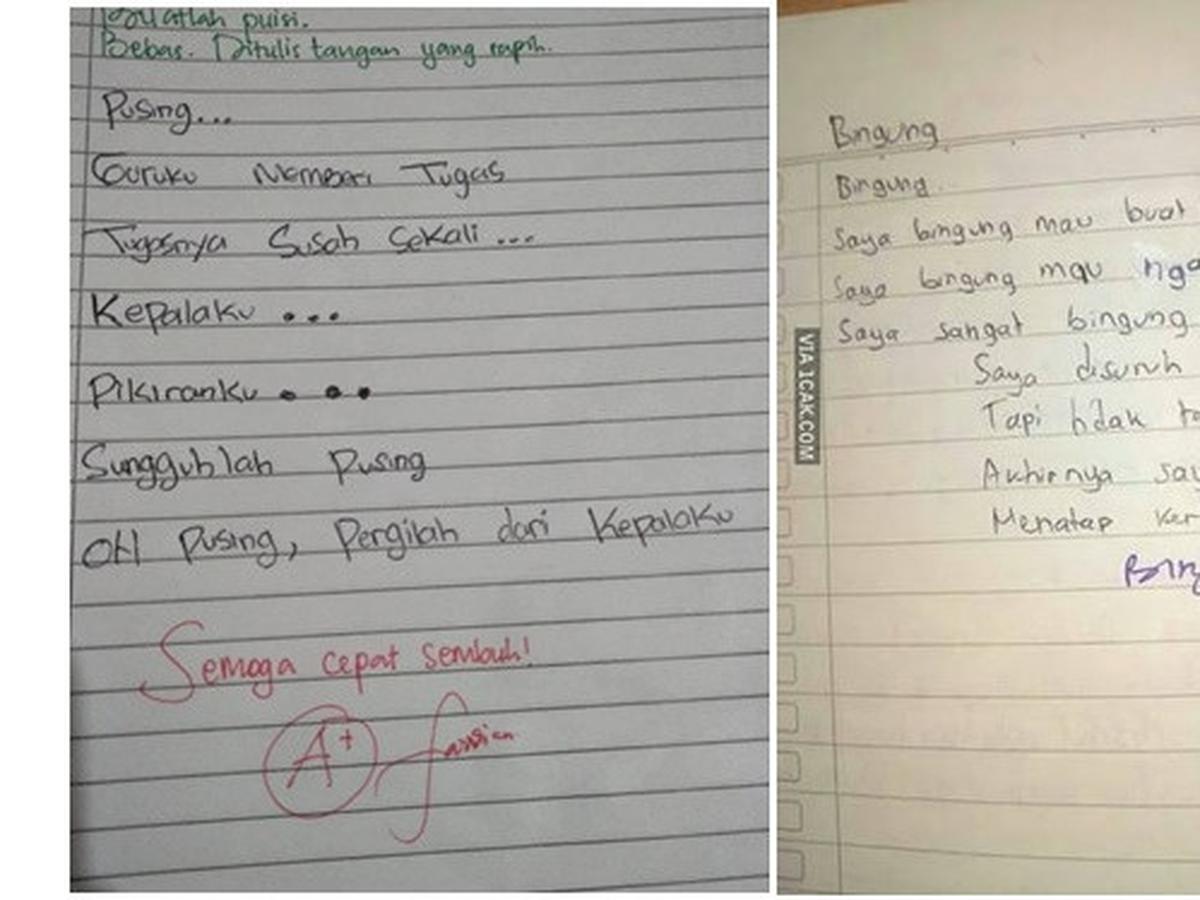 Buatlah puisi.
Bebas. Ditulis tangan yang rapih.
Pusing...
Guruku Memberi Tugas
Tugasnya Susah Sekali ...
Kepalaku ...
Pikiranku ...
Sungguhlah Pusing
OH Pusing, Pergilah dari Kepalaku
Semoga cepat sembuh!
A+
Bingung
Bingung.
Saya bingung mau buat
Saya bingung mau nga
Saya sangat bingung
Saya disuruh
Tapi tidak
Akhirnya
Menatap
VIA 1CAK.COM